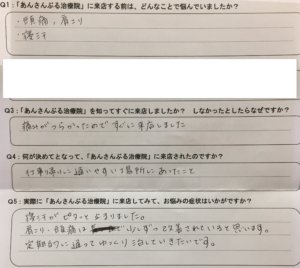 Q1:「あんさんぶる治療院」に来店する前は、どんなことで悩んでいましたか?
・頭痛、肩こり
・寝汗
Q3:「あんさんぶる治療院」を知ってすぐに来店しましたか? しなかったとしたらなぜですか?
痛みがつらかったのですぐに来店しました
Q4:何が決めてとなって、「あんさんぶる治療院」に来店されたのですか?
仕事帰りに通いやすい場所にあったこと
Q5:実際に「あんさんぶる治療院」に来店してみて、お悩みの症状はいかがですか?
寝汗がピタッと止まりました。
肩こり・頭痛は 少しずつ改善されていると思います。
定期的に通ってゆっくり治していきたいです。